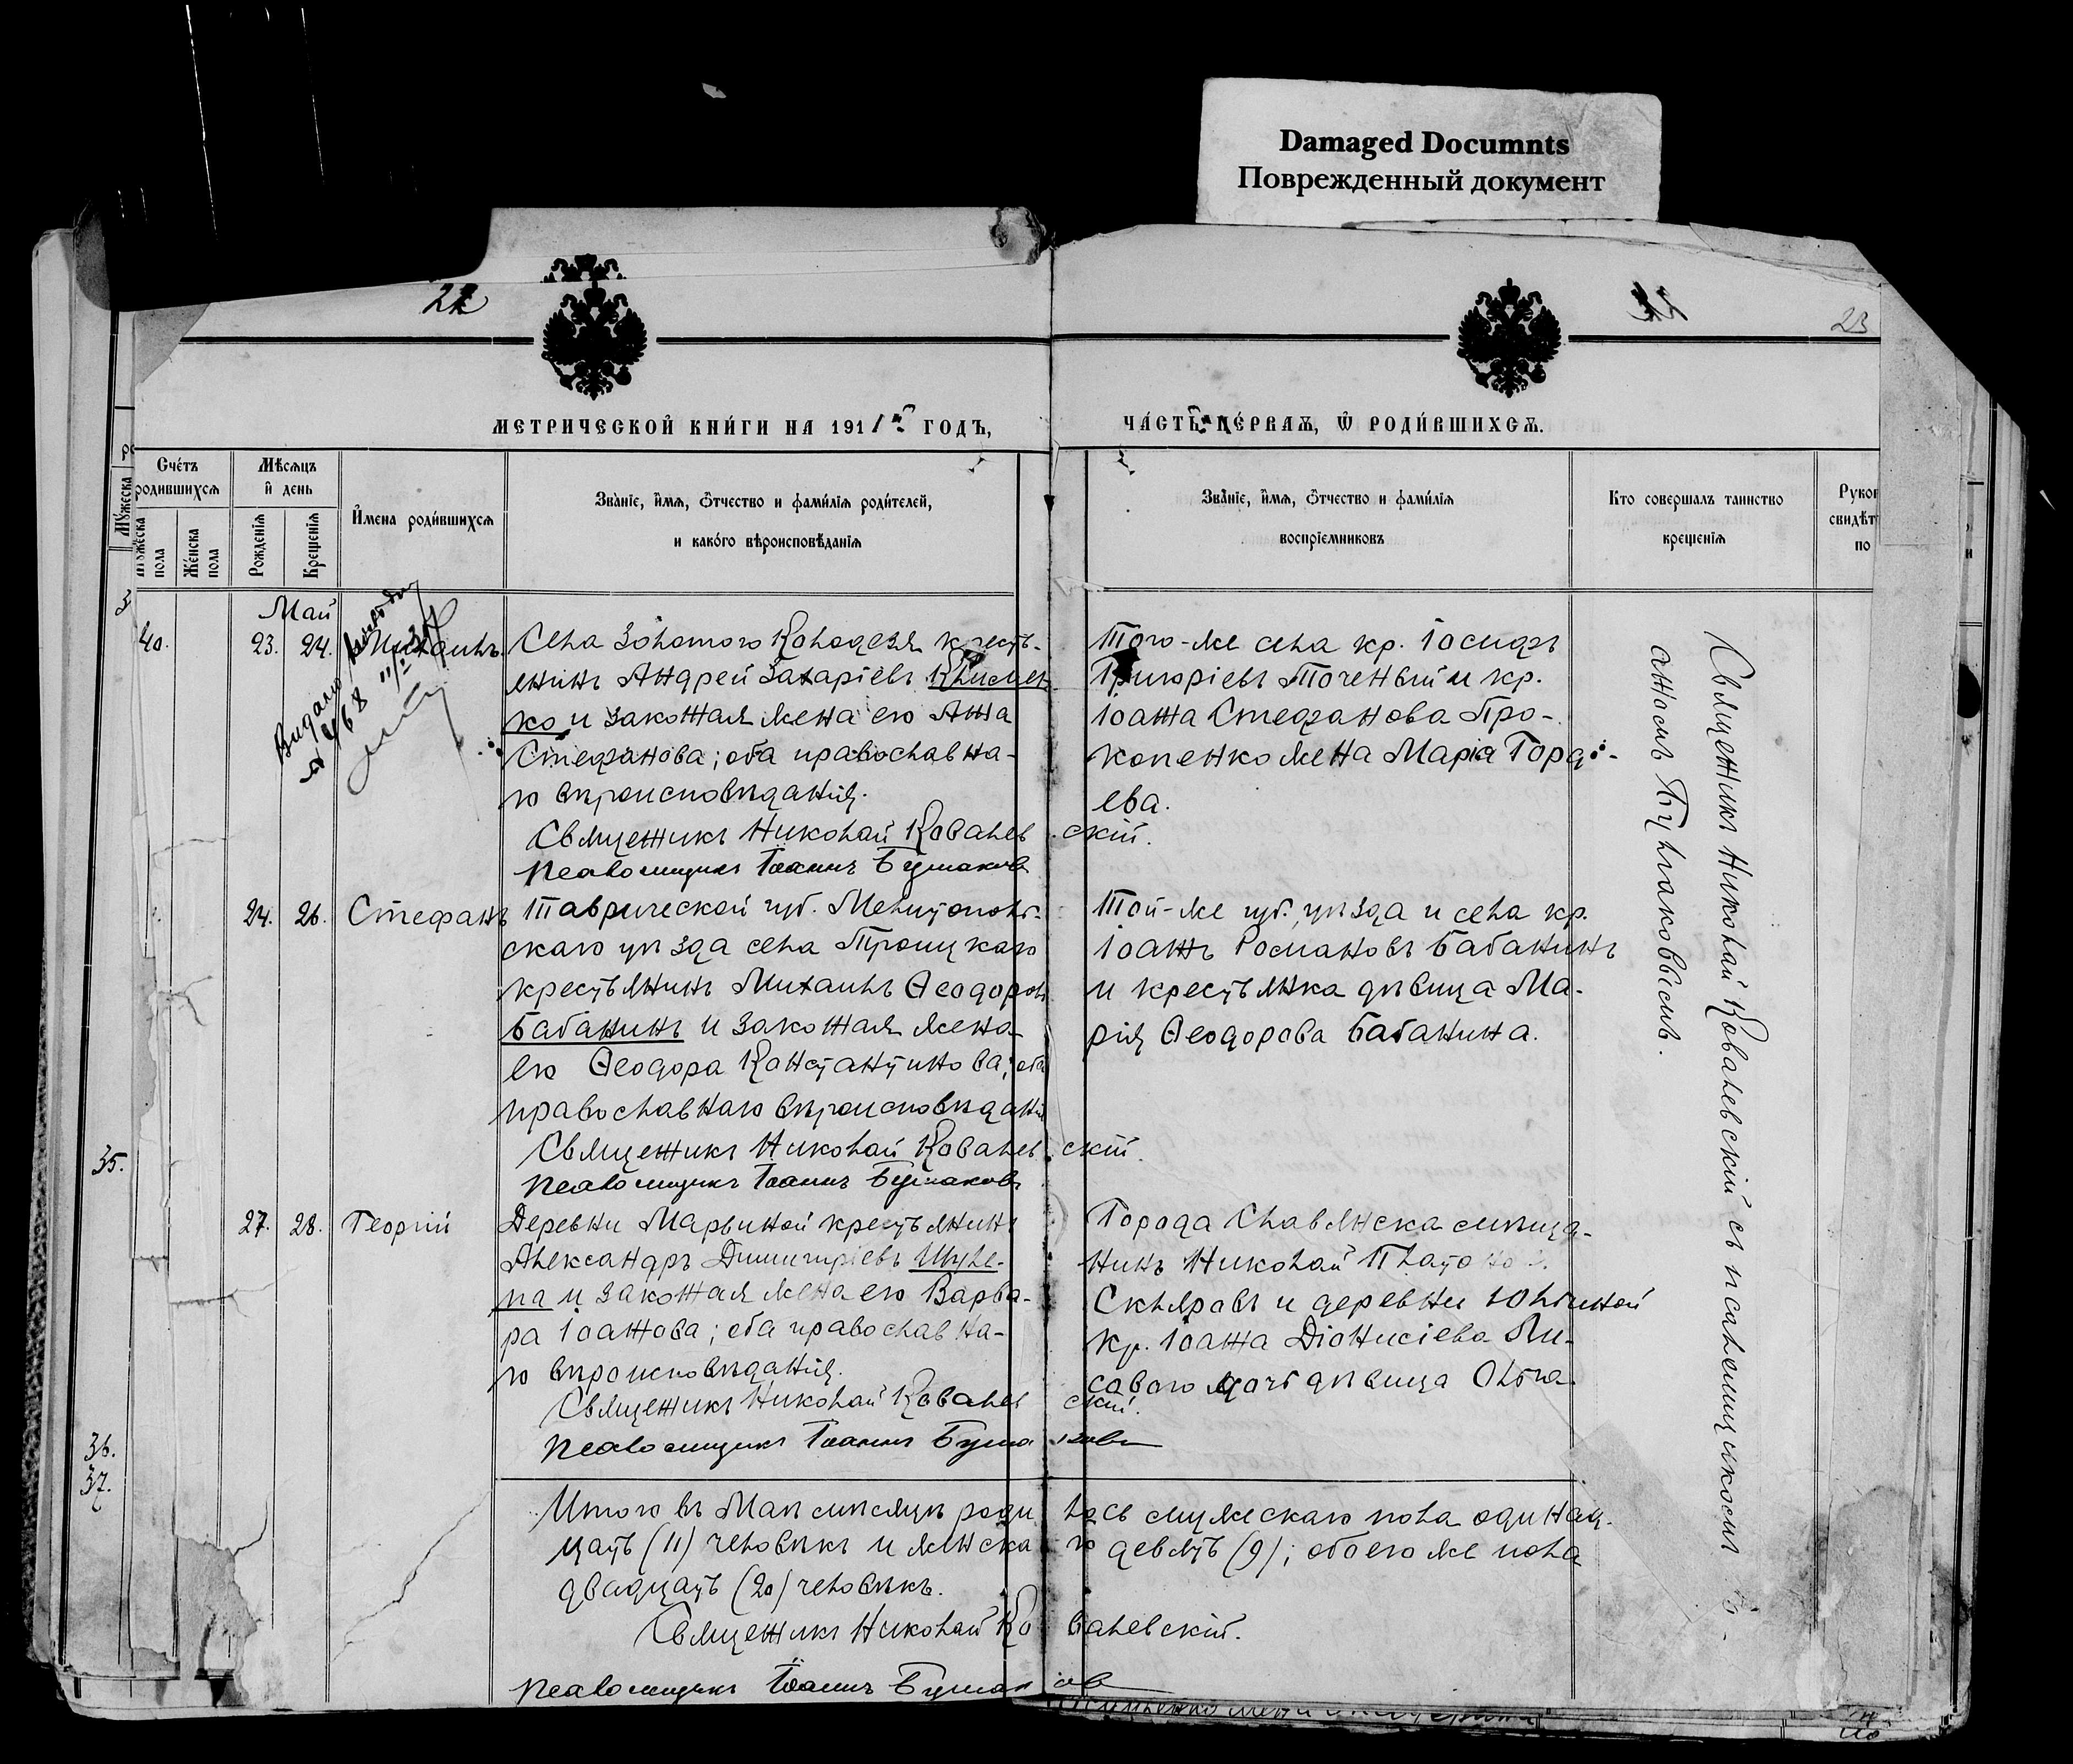 Damaged Documnts
Поврежденный документ
22
23
МЕТРИЧЕСКОЙ КНИГИ НА 1911й ГОДЪ,
ЧАСТЬ ПЕРВАЯ, Ѡ РОДИВШИХСЯ.
Счетъ родившихся
Мужеска пола
Женска пола
Мѣсяцъ и день
Рожденія
Крещенія
Имена родившихся
Званіе, имя, отчество и фамилія родителей,
и какого вѣроисповѣданія
Званіе, имя, отчество и фамилія
воспріемниковъ
Кто совершалъ таинство
крещенія
Руко
свидѣт
по
Май
40.
23.
24.
Михаилъ.
Села Золотого Колодезя кресть-
янинъ Андрей Захаріевъ Клисмен
ко и законная жена его Анна
Стефанова; оба православна-
го вѣроисповѣданія.
Священникъ Николай Ковалев
скій.
Псаломщикъ Іоаннъ Бушаков
Того-же села кр. Іосифъ
Григоріевъ Точеный и кр.
Іоанна Стефанова Про-
копенко жена Марія Горді-
ева.
24.
26.
Стефанъ
Таврической губ. Мелитополь-
скаго уѣзда села Троицкаго
крестьянинъ Михаилъ Ѳеодоровъ
Бабанинъ и законная жена
его Ѳеодора Константинова; оба
православнаго вѣроисповѣданія
Священникъ Николай Ковалев
скій.
Псаломщикъ Іоаннъ Бушаковъ
Той-же губ. уѣзда и села кр.
Іоаннъ Романовъ Бабанинъ
и крестьянка дѣвица Ма-
рія Ѳеодорова Бабанина.
35.
27.
28.
Георгій
Деревни Марьиной крестьянинъ
Александръ Димитріевъ Шуле-
па и законная жена его Варва-
ра Іоаннова; оба православна-
го вѣроисповѣданія.
Священникъ Николай Ковалев
скій.
Псаломщикъ Іоаннъ Буша
ковъ
Города Славянска мѣща-
нинъ Николай Плато
Скляровъ и деревни Юльиной
кр. Іоанна Діонисіева Ли-
сового дочь дѣвица Ольга
36.
37.
Итого въ Маѣ мѣсяцѣ роди
лось мужескаго пола одинад-
цать (11) человѣкъ и женска
го девять (9); обоего же пола
двадцать (20) человѣкъ.
Священникъ Николай Ко
валевскій.
Псаломщикъ Іоаннъ Бушак
ов
Священникъ Николай Ковалевскій съ псаломщикомъ Іо-
анномъ Бушаковымъ.